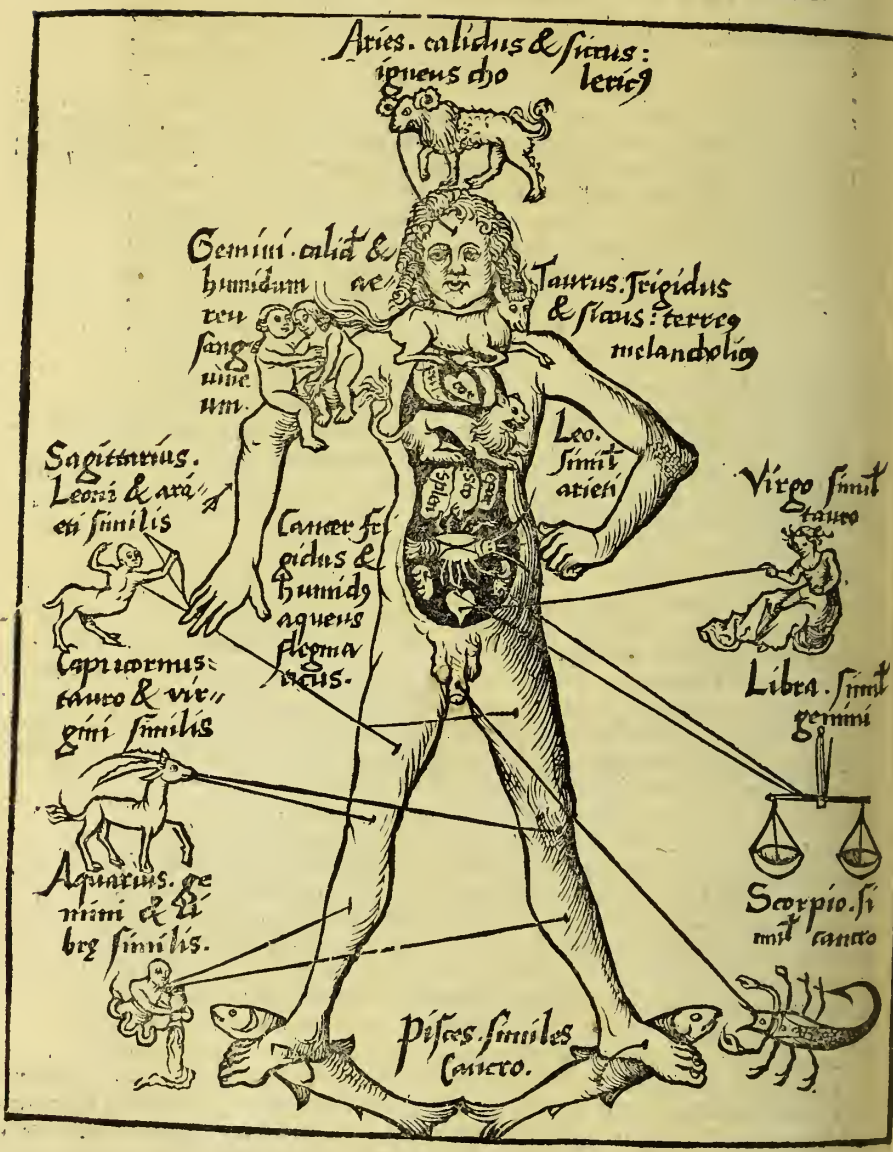 Aries. calidus & siccus:
igneus cho lericꝰ
Gemini. calid̄ &
humidum ae-
reu
sang
uine
um.
Taurus. frigidus
& siccus: terreꝰ
melancholicꝰ
Leo.
simil̄
arieti
Sagittarius.
Leoni & ari-
eti similis
Cancer fri
gidus &
humidꝰ
aqueus
flegma
ticus.
splen
sto
epar
Virgo simil̄
tauro
Capricornus:
tauro & vir-
gini similis
Libra. simil̄
gemini
Aquarius. ge
mini & Li
brę similis.
Scorpio. si
mil̄ cancro
Pisces. similes
Cancro.